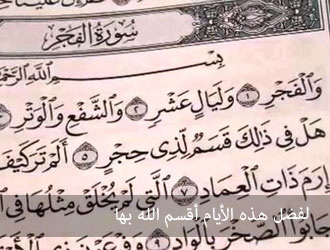 سُورَةُ الْفَجْرِ
بِسْمِ اللَّهِ
وَالْفَجْرِ ١ وَلَيَالٍ عَشْرٍ ٢ وَالشَّفْعِ وَالْوَتْرِ
هَلْ فِي ذَٰلِكَ قَسَمٌ لِّذِي حِجْرٍ ٥ أَلَمْ تَرَ كَيْفَ
إِرَمَ ذَاتِ الْعِمَادِ ٧ الَّتِي لَمْ يُخْلَقْ مِثْلُهَا فِي
لفضل هذه الأيام أقسم الله بها
جَابُوا الصَّخْرَ بِالْوَادِ ٩ وَفِرْعَوْنَ ذِي